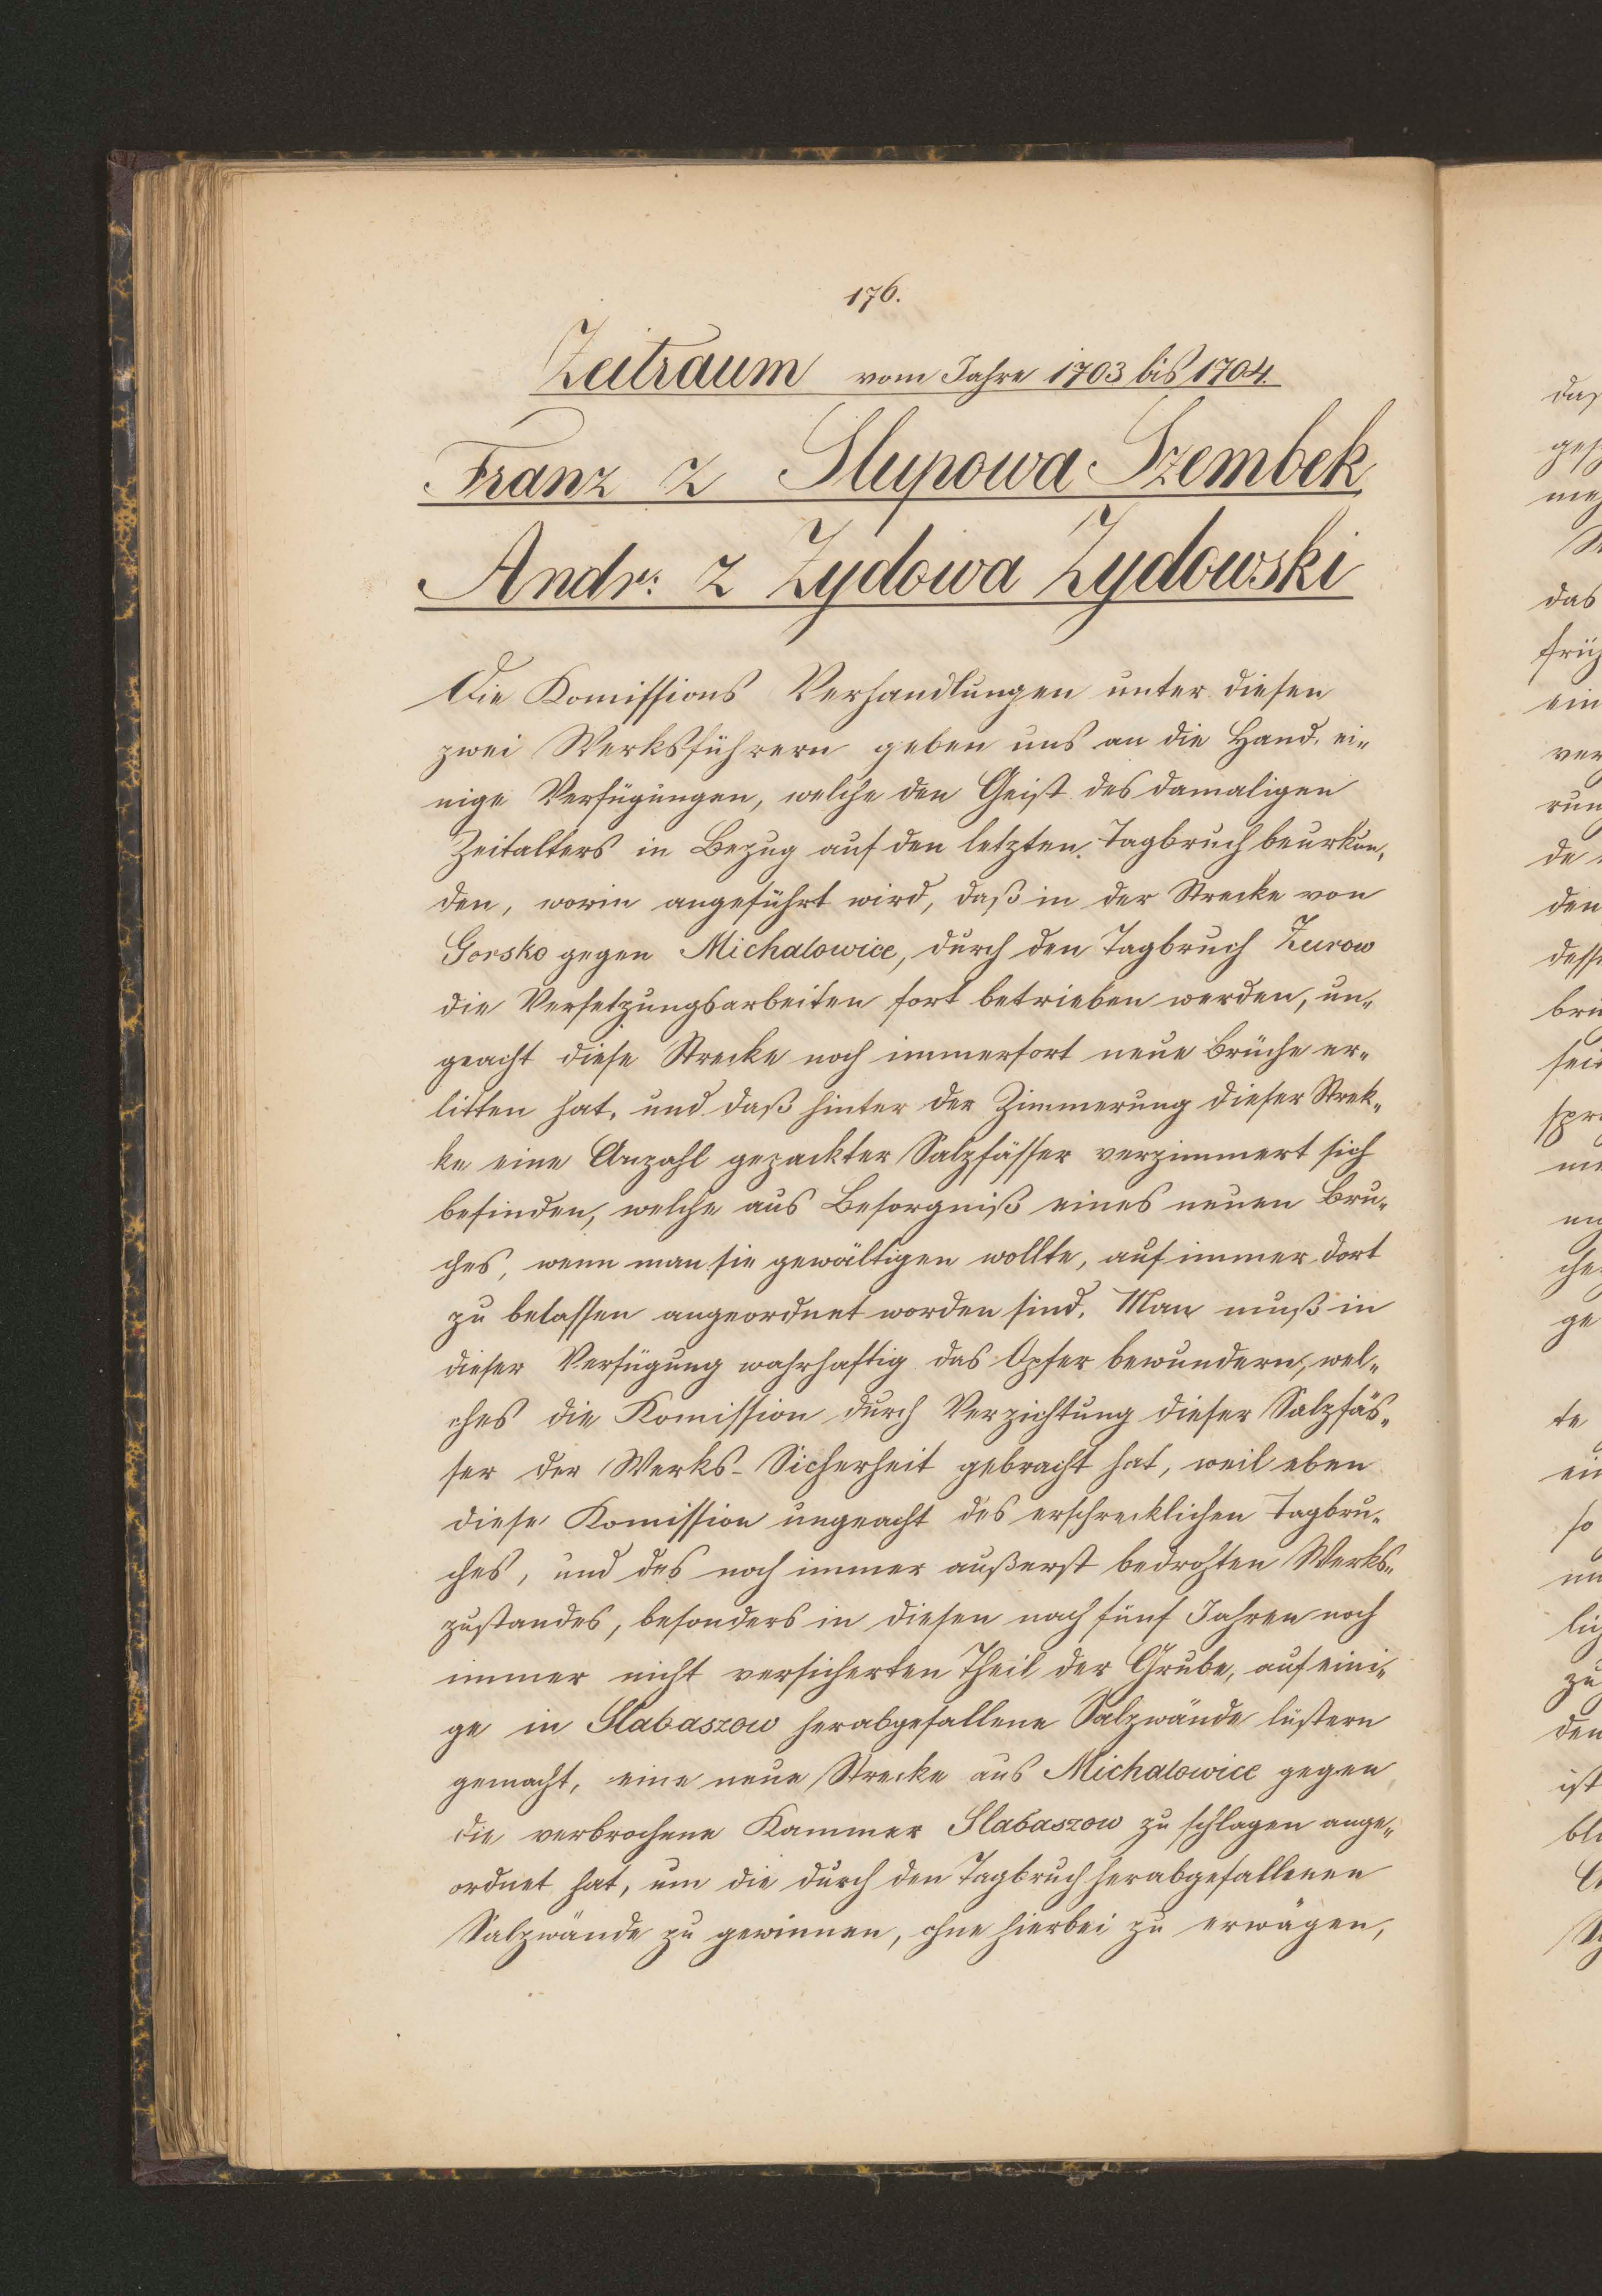 176.
Zeitraum vom Jahre 1703 bis 1704.
Franz z Slupowa Szembek
Andr: z Zydowa Zydowski
Die Komissions Verhandlungen unter diesen
zwei Werksführern geben uns an die Hand, ei-
nige Verfügungen, welche den Geist des damaligen
Zeitalters in Bezug auf den letzten Tagbruch beurkun-
den, worin angeführt wird, daß in der Strecke von
Gorsko gegen Michalowice, durch den Tagbruch Zurow
die Versetzungsarbeiten fort betrieben werden, un-
geacht diese Strecke noch immerfort neue Brüche er-
litten hat, und daß hinter der Zimmerung dieser Strek-
ke eine Anzahl gepackter Salzfässer verzimmert sich
befinden, welche aus Besorgniß eines neuen Bru-
ches, wenn man sie gewältigen wollte, auf immer dort
zu belassen angeordnet worden sind. Man muß in
dieser Verfügung wahrhaftig das Opfer bewundern, wel-
ches die Komission durch Verzichtung dieser Salzfäs-
ser der Werks-Sicherheit gebracht hat, weil eben
diese Komission ungeacht des erschrecklichen Tagbru-
ches, und des noch immer außerst bedrohten Werks-
zustandes, besonders in diesen nach fünf Jahren noch
immer nicht versicherten Theil der Grube, auf eini-
ge in Slabaszow herabgefallene Salzwände lüstern
gemacht, eine neue Strecke aus Michalowice gegen
die verbrochene Kammer Slabaszow zu schlagen ange-
ordnet hat, um die durch den Tagbruch herabgefallenen
Salzwände zu gewinnen, ohne hierbei zu erwägen,